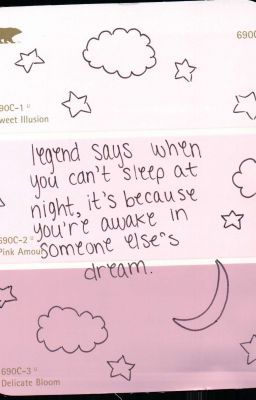 690C
90C-1 D
weet Illusion
legend says when
you can't sleep at
night, it's because
you're awake in
someone else's
dream.
90C-2 D
Pink Amou
690C-3 D
Delicate Bloom